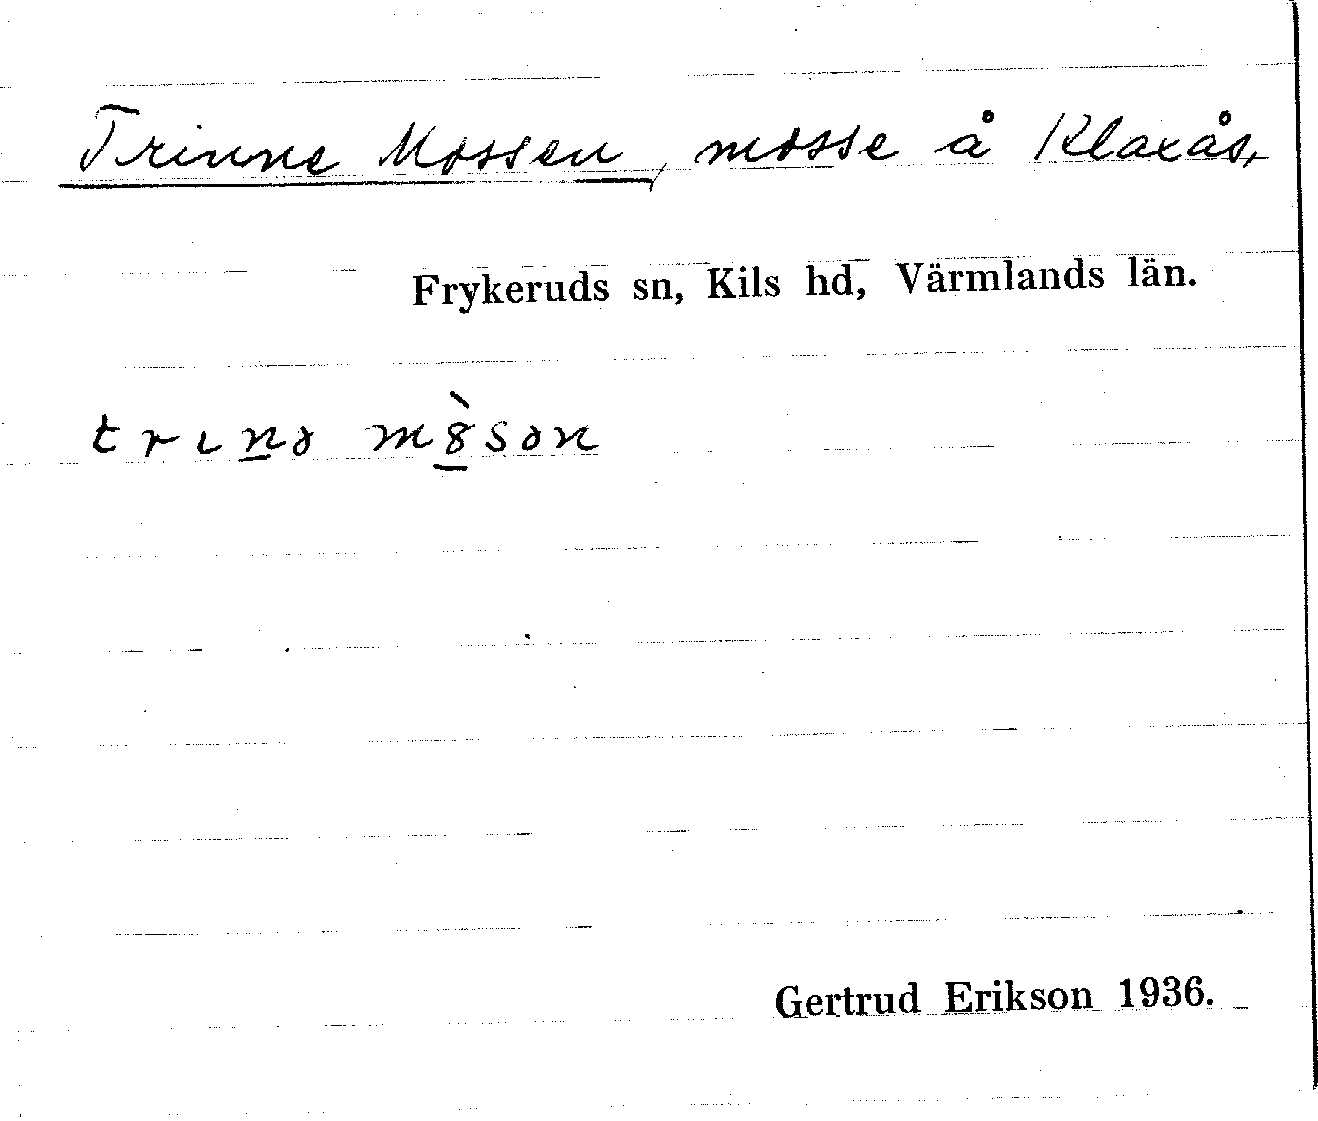 Trinne Mossen, mosse å Klaxås,
Frykeruds sn, Kils hd, Värmlands län.
trınə mȣ̀sən
Gertrud Erikson 1936.